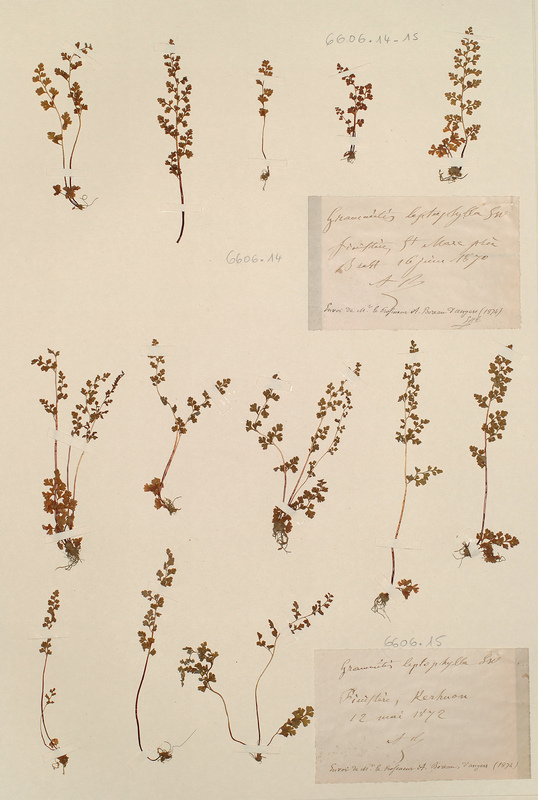 6606.14-15
Grammitis leptophylla Sw
Finistère, St Marc près
Brest 16 juin 1870
Envoi de Mr E A. Boreau d'angers (1874)
6606.14
6606.15
Grammitis leptophylla Sw
Finistère, Kerhuon
12 mai 1872
Envoi de Mr E A. Boreau, d'angers (1874)